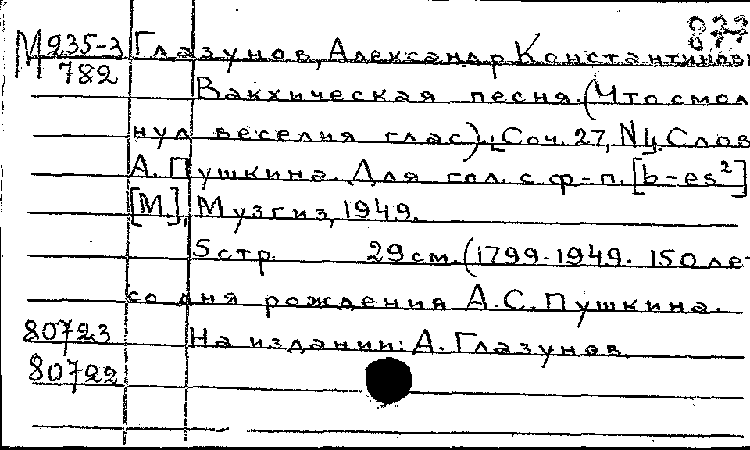 877
М235-3 Глазунов, Александр Константинови
782 Вакхическая песня. (Что смол
нул веселия глас). Соч. 27, N 1. Слов
А. Пушкина. Для гол. с ф-п. [b-es²]
[М.], Музгиз, 1949.
5 стр. 29 см. (1799-1949. 150 ле
со дня рождения А.С. Пушкина.
80723 На издании: А. Глазунов
80722